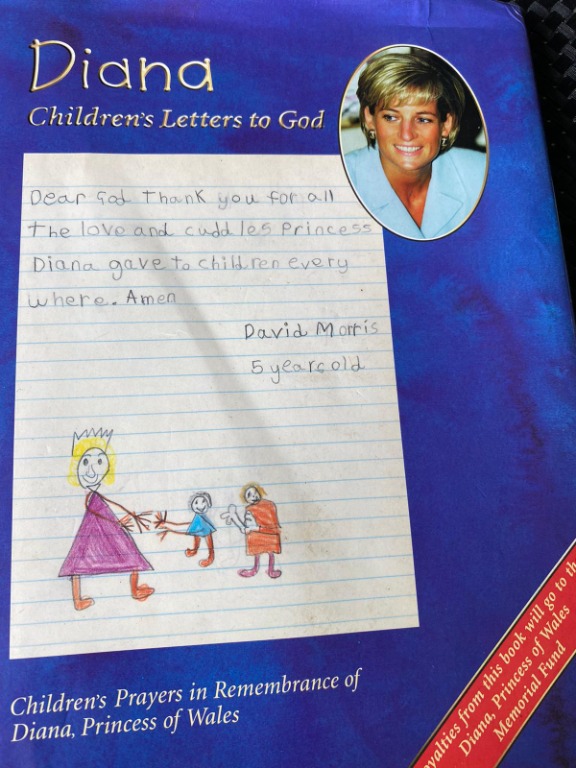 Diana
Children's Letters to God
Dear God Thank you for all
the love and cuddles Princess
Diana gave to children every
where. Amen
David Morris
5 years old
Children's Prayers in Remembrance of
Diana, Princess of Wales
oyalties from this book will go to th
Diana, Princess of Wales
Memorial Fund